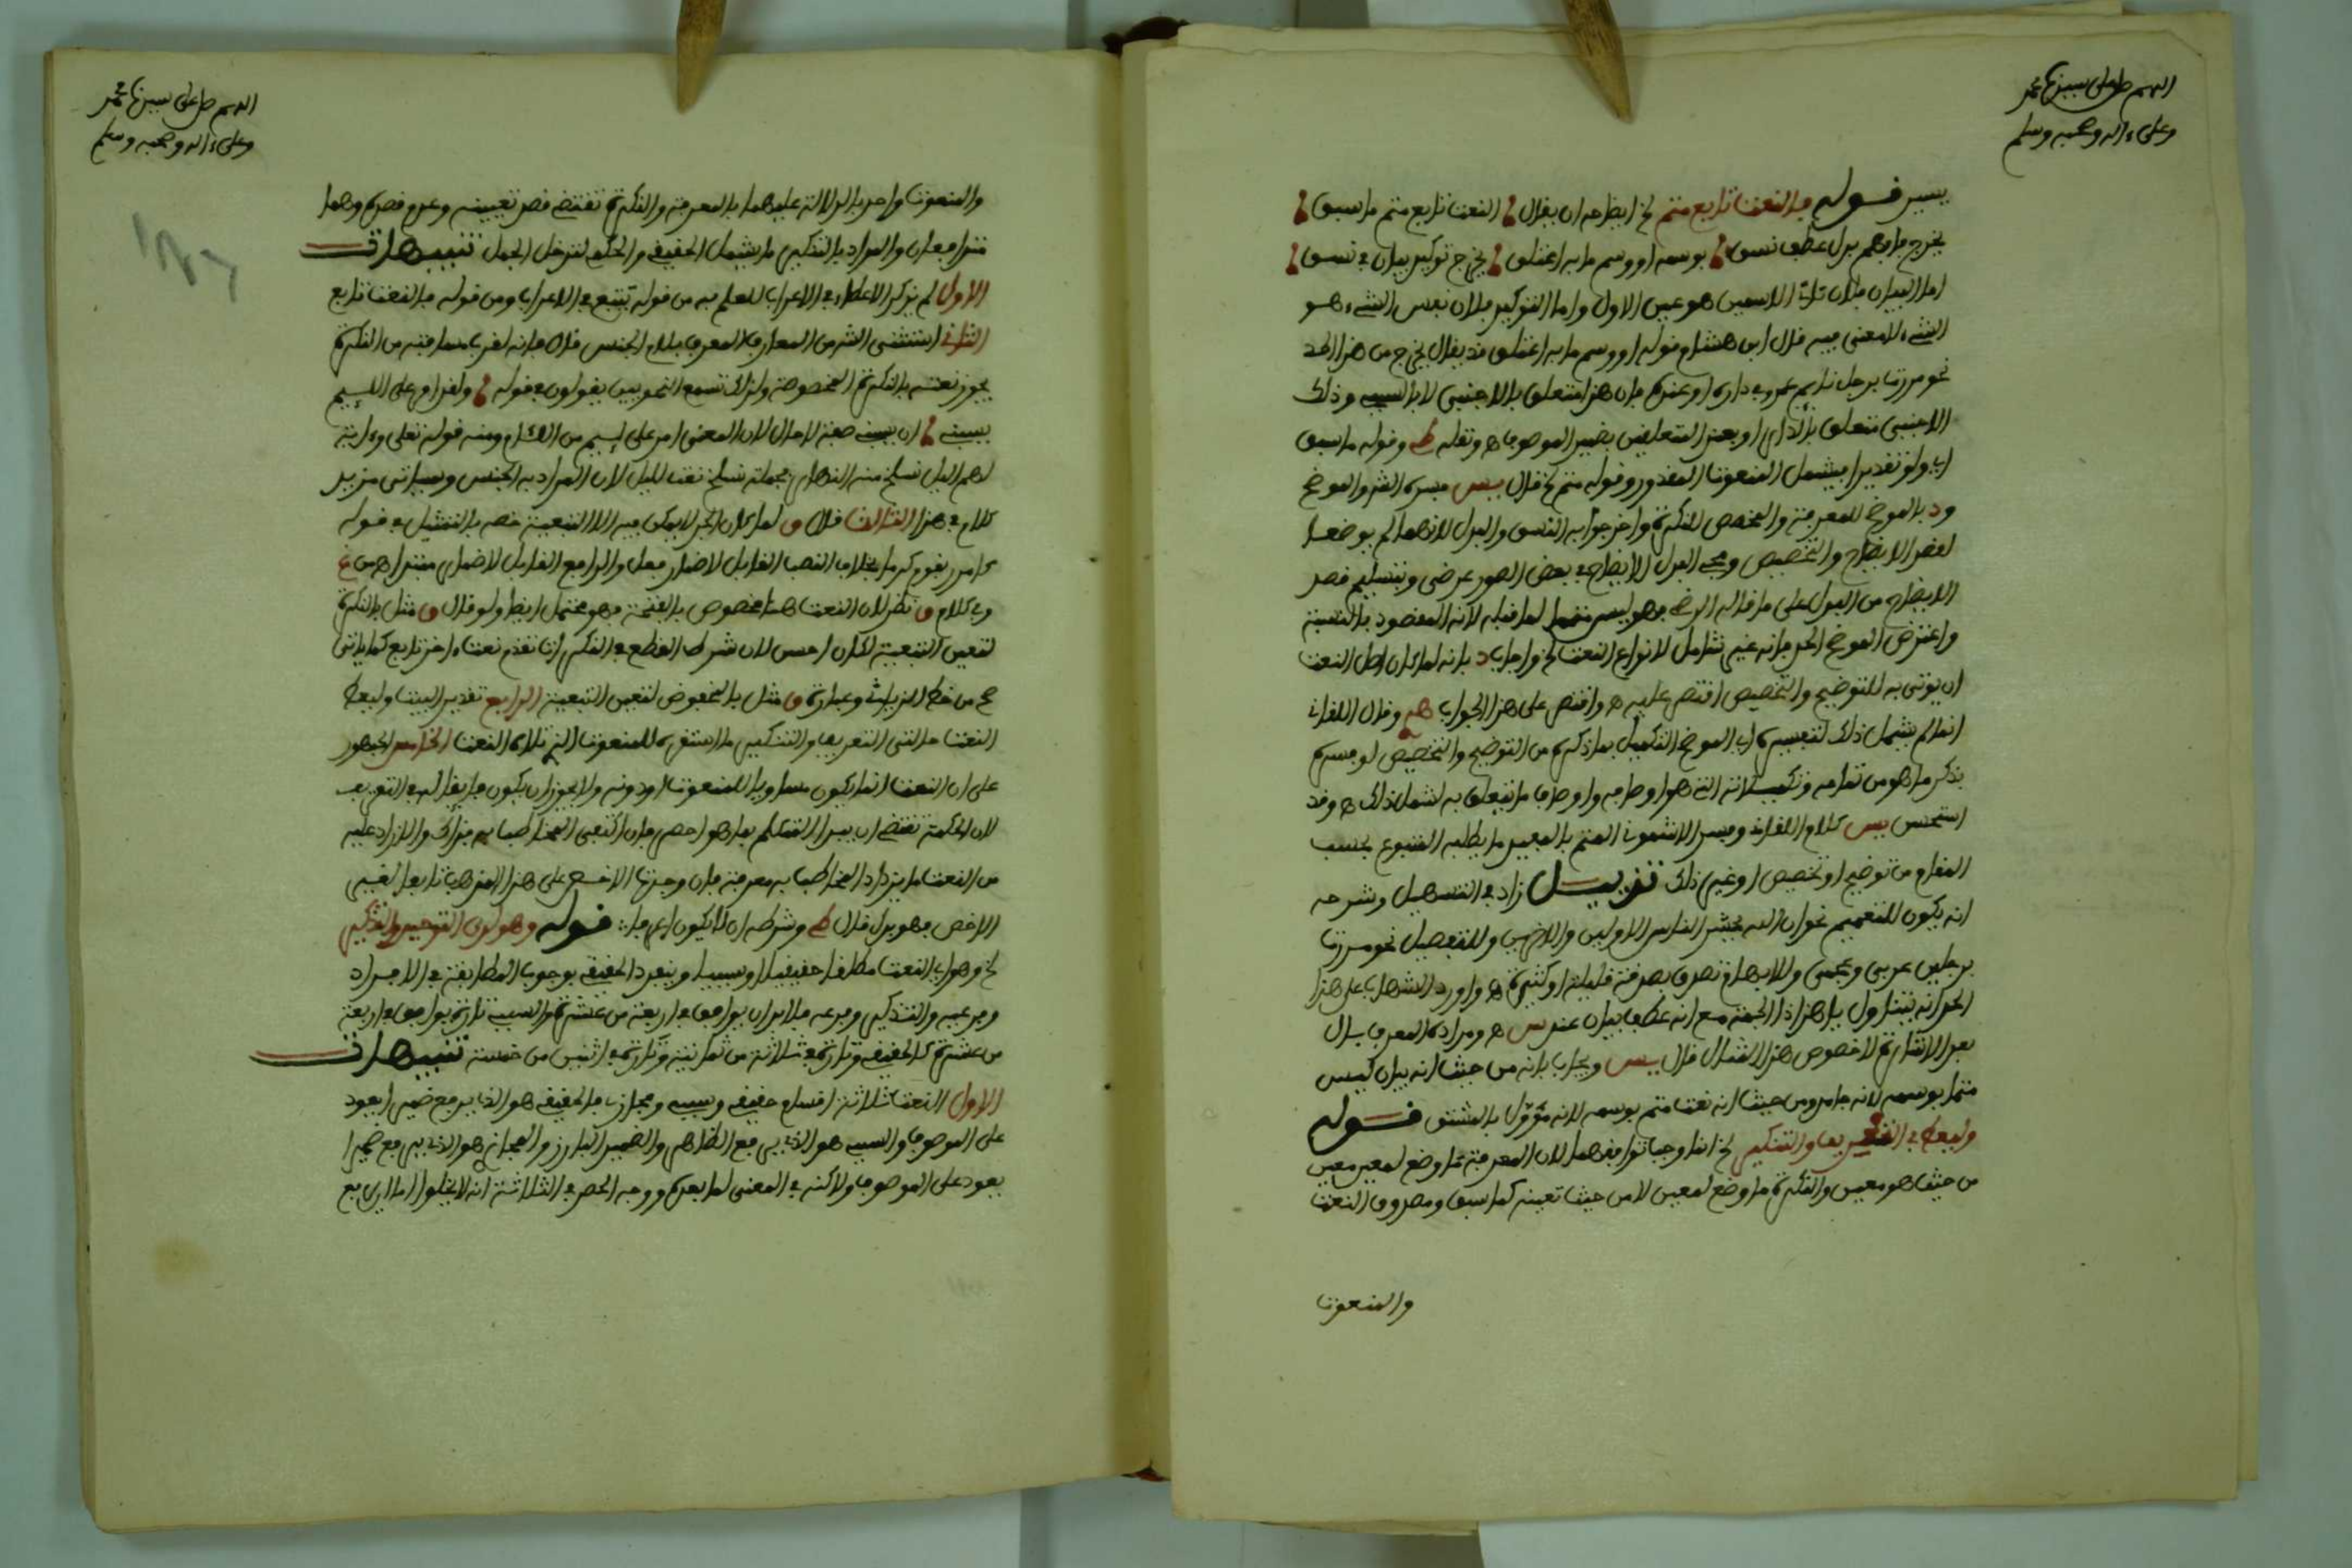 اللهم صل على سيدنا محمد
وعلى ءاله وصحبه وسلم
يسير قوله فالنعت تابع متم الخ ايضاحه ان يقال النعت تابع متم ما سبق
يخرج ما وهم بدل عطف نسق بوسمه او وسم ما به اعتلق يخرج توكيد بيان نسق
اما البيان فلان ثاني الاسمين هو عين الاول واما التوكيد فلان نفس الشيء هو
الشيء لا معنى فيه قال ابن هشام قوله او وسم ما به اعتلق قد يقال يخرج من هذا الحد
نحو مررت برجل نايم عمرو في داره او عنده فان هذا متعلق بالاجنبي لا بالسببي وذلك
الاجنبي متعلق بالدار او بعند المتعلقين بضمير الموصوف ه ونقله ط وقوله ما سبق
اي ولو تقديرا ليشمل المنعوت المقدر وقوله متم الخ قال يس فسره الشر والموضح
ود بالموضح للمعرفة والمخصص للنكرة واخرجوا به النسق والبدل لانهما لم يوضعا
لقصد الايضاح والتخصيص ومجيء البدل للايضاح في بعض الصور عرضي وبتسليم قصد
الايضاح من البدل على ما قاله الرضي فهو ليس متمما لما قبله لانه المقصود بالنسبة
واعترض الموضح الحد بانه غير شامل لانواع النعت الخ واجاب د بانه لما كان اصل النعت
ان يوتى به للتوضيح والتخصيص اقتصر عليه ه واقتصر على هذا الجواب وقال اللقاني
انما لم يشمل ذلك لتفسيره اي الموضح التكميل بما ذكره من التوضيح والتخصيص لو فسره
بذكر ما هو من تمامه وتكميلاته التي هو اوصافه او اوصاف ما تتعلق به لشمل ذلك ه وقد
استحسن يس كلام اللقاني وفسر الاشموني المتم بالمفيد ما يطلبه المتبوع بحسب
المقام من توضيح او تخصيص او غير ذلك تذييل زاد في التسهيل وشرحه
انه يكون للتعميم نحو ان الله يحشر الناس الاولين والاخرين وللتفصيل نحو مررت
برجلين عربي وعجمي وللابهام تصدق بصدقة قليلة او كثيرة ه واورد الشهاب على هذا
الحد انه يتناول يا هذا ذا الجمة مع انه عطف بيان عند س ه ومراده المعرف بال
بعد الاشارة لا خصوص هذا المثال قال يس ويجاب بانه من حيث انه بيان ليس
متما بوسمه لانه جامد ومن حيث انه نعت متم بوسمه لانه مؤول بالمشتق قوله
وليعط في التعريف والتنكير الخ انما وجب توافقهما لان المعرفة ما وضع لمعين
من حيث هو معين والنكرة ما وضع لمعين لا من حيث تعينه كما سبق ومصدوق النعت
والمنعوت
اللهم صل على سيدنا محمد
وعلى ءاله وصحبه وسلم
والمنعوت واحد بالدلالة عليهما بالمعرفة والنكرة تقتضي قصد تعيينه وعدم قصده وهما
متدافعان والمراد بالتنكير ما يشمل الحقيقي والحكمي لتدخل الجمل تنبيهات
الاول لم يذكر الاعطاء في الاعراب للعلم به من قوله يتبع في الاعراب ومن قوله فالنعت تابع
الثاني استثنى الشر من المعارف المعرف بلام الجنس قال فانه لقرب مسافته من النكرة
يجوز نعته بالنكرة المخصوصة ولذلك تسمع النحويين يقولون في قوله ولقد امر على اللئيم
يسبني ان يسبني صفة لا حال لان المعنى امر على لئيم من اللئام ومنه قوله تعلى وءاية
لهم اليل نسلخ منه النهار فجملة نسلخ نعت لليل لان المراد به الجنس وسياتي مزيد
كلام في هذا الثالث قال ق لما كان الجر لا يمكن فيه الا التبعية خصه بالتمثيل في قوله
كامرر بقوم كرما بخلاف النصب القابل لاضمار فعل والرافع القابل لاضمار مبتدا ه من غ
وفي كلام ق نظر لان النعت هنا مخصوص بالفتحة فهو محتمل ايضا ولو قال ق مثل بالنكرة
لتعين التبعية لكان احسن لان شرط القطع في النكرة ان تقدم نعت ءاخر تابع كما ياتي
صح من خط الزياتي وعبارة ق مثل بالمخفوض لتعين التبعية الرابع تقدير البيت وليعط
النعت حالتي التعريف والتنكير ما استقر للمنعوت الذي تلاه النعت الخامس الجمهور
على ان النعت انما يكون مساويا للمنعوت او دونه ولا يجوز ان يكون فايقا له في التعريف
لان الحكمة تقتضي ان يبدا المتكلم بما هو اخص فان اكتفى المخاطب به فذاك والا زاد عليه
من النعت ما يزداد المخاطب به معرفة فان وجدت الاخص على هذا المذهب تابعا لغير
الاخص فهو بدل قال ط وشرطه ان لا يكون اعم قوله وهو لدى التوحيد والتذكير
الخ وهو اي النعت مطلقا حقيقيا او سببيا وينفرد الحقيقي بوجوب المطابقة في الافراد
وفرعيه والتذكير وفرعه فلا بد ان يوافق في اربعة من عشرة والسببي تارة يوافق في اربعة
من عشرة كالحقيقي وتارة في ثلاثة من ثمانية وتارة في اثنين من خمسة تنبيهات
الاول النعت ثلاثة اقسام حقيقي وسببي ومجازي فالحقيقي هو الذي يرفع ضميرا يعود
على الموصوف والسببي هو الذي يرفع الظاهر والضمير البارز والمجازي هو الذي يرفع ضميرا
يعود على الموصوف ولاكنه في المعنى لما بعده ووجه الحصر في الثلاثة انه لا يخلو اما ان يرفع